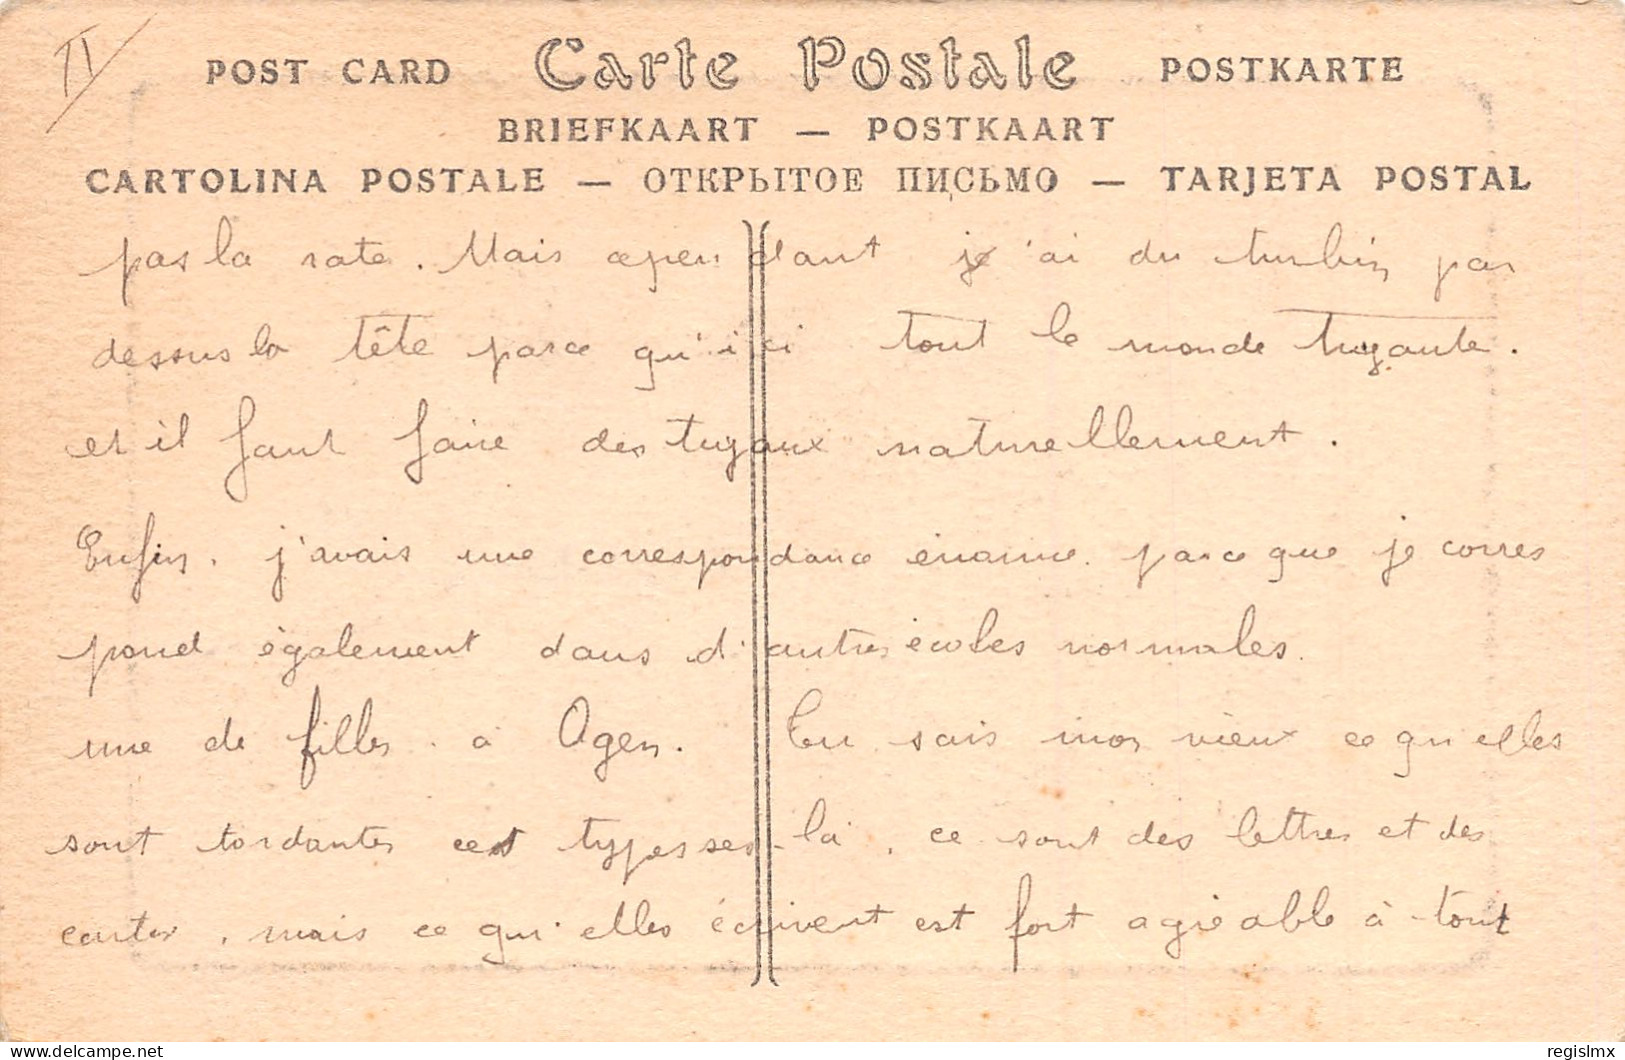 II
POST CARD Carte Postale POSTKARTE
BRIEFKAART — POSTKAART
CARTOLINA POSTALE — ОТКРЫТОЕ ПИСЬМО — TARJETA POSTAL
pas la rate. Mais cependant j'ai du turbin par
dessus la tête parce qu'ici tout le monde tuyaute.
et il faut faire des tuyaux naturellement.
Enfin. j'avais une correspondance énorme. parce que je corres
pond également dans d'autres écoles normales.
une de filles. à Agen. Tu sais mon vieux ce qu'elles
sont tordantes ces typesses-là. ce sont des lettres et des
cartes. mais ce qu'elles écrivent est fort agréable à tout
delcampe.net
regislmx